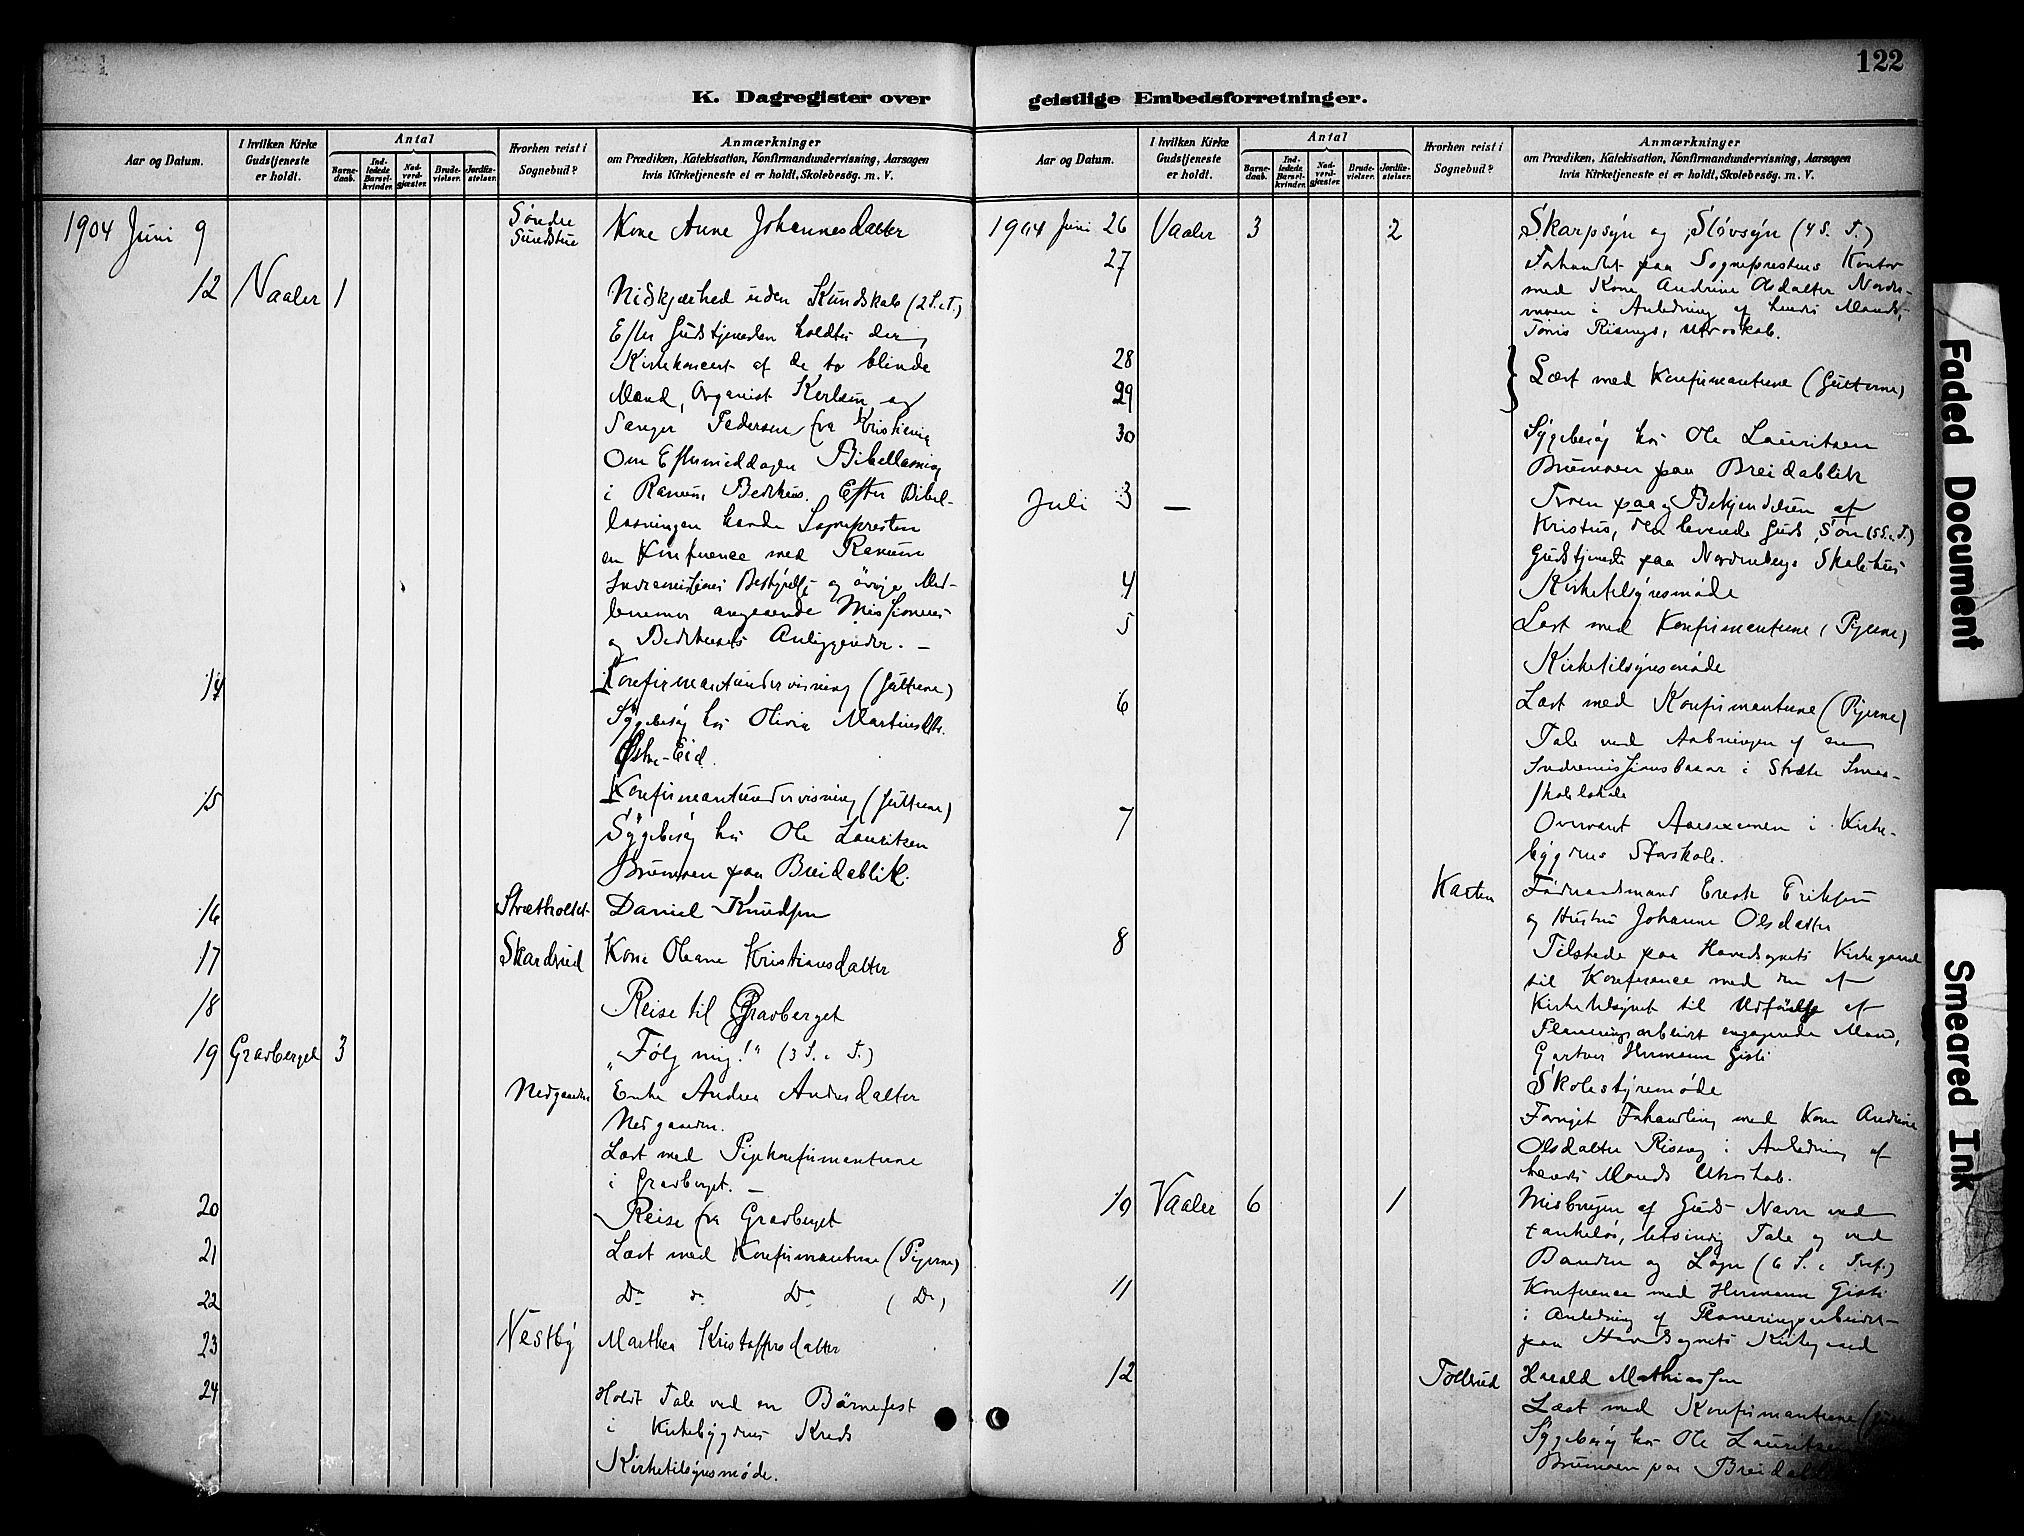 122
K. Dagregister over geistlige Embedsforretninger.
Aar og Datum.
I hvilken Kirke Gudstjeneste er holdt.
Antal
Barnedaab.
Indledede Barselkvinder.
Nadverdgjæster.
Brudevielser.
Jordfæstelser.
Hvorhen reist i Sognebud?
Anmærkninger
om Prædiken, Katekisation, Konfirmandundervisning, Aarsagen
hvis Kirketjeneste ei er holdt, Skolebesøg. m. V.
1904 Juni 9 Søndre Sundstue Kone Anne Johannesdatter
12 Vaaler 1 Nidkjærhed uden Kundskab (2 S. e. T.)
Efter Gudstjenesten holdtes der
Kirkekoncert af de to blinde
Mænd, Organist Karlsen og
Sanger Pedersen fra Kristiania
Om Eftermiddagen Bibellæsning
i Ranum Bedehus. Efter Bibel-
læsningen havde Sognepresten
en Konference med Ranum
Indremissions Bestyrelse og øvrige Med-
lemmer angaaende Missionens
og Bedehusets Anliggender. —
14 Konfirmantundervisning (Gutterne)
Sygebesøg hos Olivia Martinsdtr.
Østre-Eid.
15 Konfirmantundervisning (Gutterne)
Sygebesøg hos Ole Lauritsen
Brumoen paa Breidablik.
16 Strætholtet Daniel Knudsen
17 Skardsrud Kone Oleane Kristiansdatter
18 Reise til Gravberget
19 Gravberget 3 „Følg mig!“ (3 S. e. T.)
Nedgaarden Enke Andrea Andersdatter
Nedgaarden.
Læst med Pigekonfirmanterne
i Gravberget. —
20 Reise fra Gravberget
21 Læst med Konfirmanterne (Pigerne)
22 Do do Do (Do)
23 Vestby Marthea Kristoffersdatter
24 Holdt Tale ved en Børnefest
i Kirkebygdens Kreds
Kirketilsynsmøde.
Aar og Datum.
I hvilken Kirke Gudstjeneste er holdt.
Antal
Barnedaab.
Indledede Barselkvinder.
Nadverdgjæster.
Brudevielser.
Jordfæstelser.
Hvorhen reist i Sognebud?
Anmærkninger
om Prædiken, Katekisation, Konfirmandundervisning, Aarsagen
hvis Kirketjeneste ei er holdt, Skolebesøg. m. V.
1904 Juni 26 Vaaler 3 2 Skarpsyn og Sløvsyn (4 S. e. T.)
27 Forhandlet paa Sogneprestens Kontor
med Kone Andrine Olsdatter
i Anledning af hendes Mands,
Utroskab.
28
29 Læst med Konfirmanterne (Gutterne)
30 Sygebesøg hos Ole Lauritsen
Brumoen paa Breidablik
Juli 3 — Troen paa og Bekjendelsen af
Kristus, den levende Guds Søn (5 S. e. T.)
Gudstjeneste paa Nordenbergs Skolehus
4 Kirketilsynsmøde
5 Læst med Konfirmanterne (Pigerne)
Kirketilsynsmøde
6 Læst med Konfirmanterne (Pigerne)
Tale ved Aabningen af en
Indremissionsbasar i Stræte Smaa-
skolelokale
7 Overværet Aarsexamen i Kirke-
bygdens Storskole.
Karten Føderaadsmand Erik Eriksen
og Hustru Johanne Olsdatter
8 Tilstede paa Hovedsognets Kirkegaard
til Konference med den af
Kirketilsynet til Udførelse af
Planeringsarbeidet engagerede Mand,
Gartner Hermann Gisti
Skolestyremøde
Fornyet Forhandling med Kone Andrine
Olsdatter i Anledning af
hendes Mands Utroskab.
10 Vaaler 6 1 Misbrugen af Guds Navn ved
tankeløs, letsindig Tale og ved
Banden og Løgn (6 S. e. Tref.)
11 Konference med Hermann Gisti
i Anledning af Planeringsarbeidet
paa Hovedsognets Kirkegaard
12 Tollerud Harald Mathiassen
Læst med Konfirmanterne
Sygebesøg hos Ole Lauritsen
Brumoen paa Breidablik
Faded Document
Smeared Ink